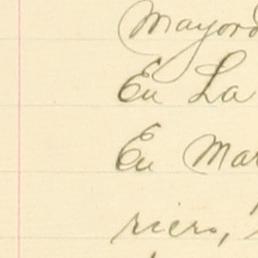 Mayord
En La
En Mar
riers,